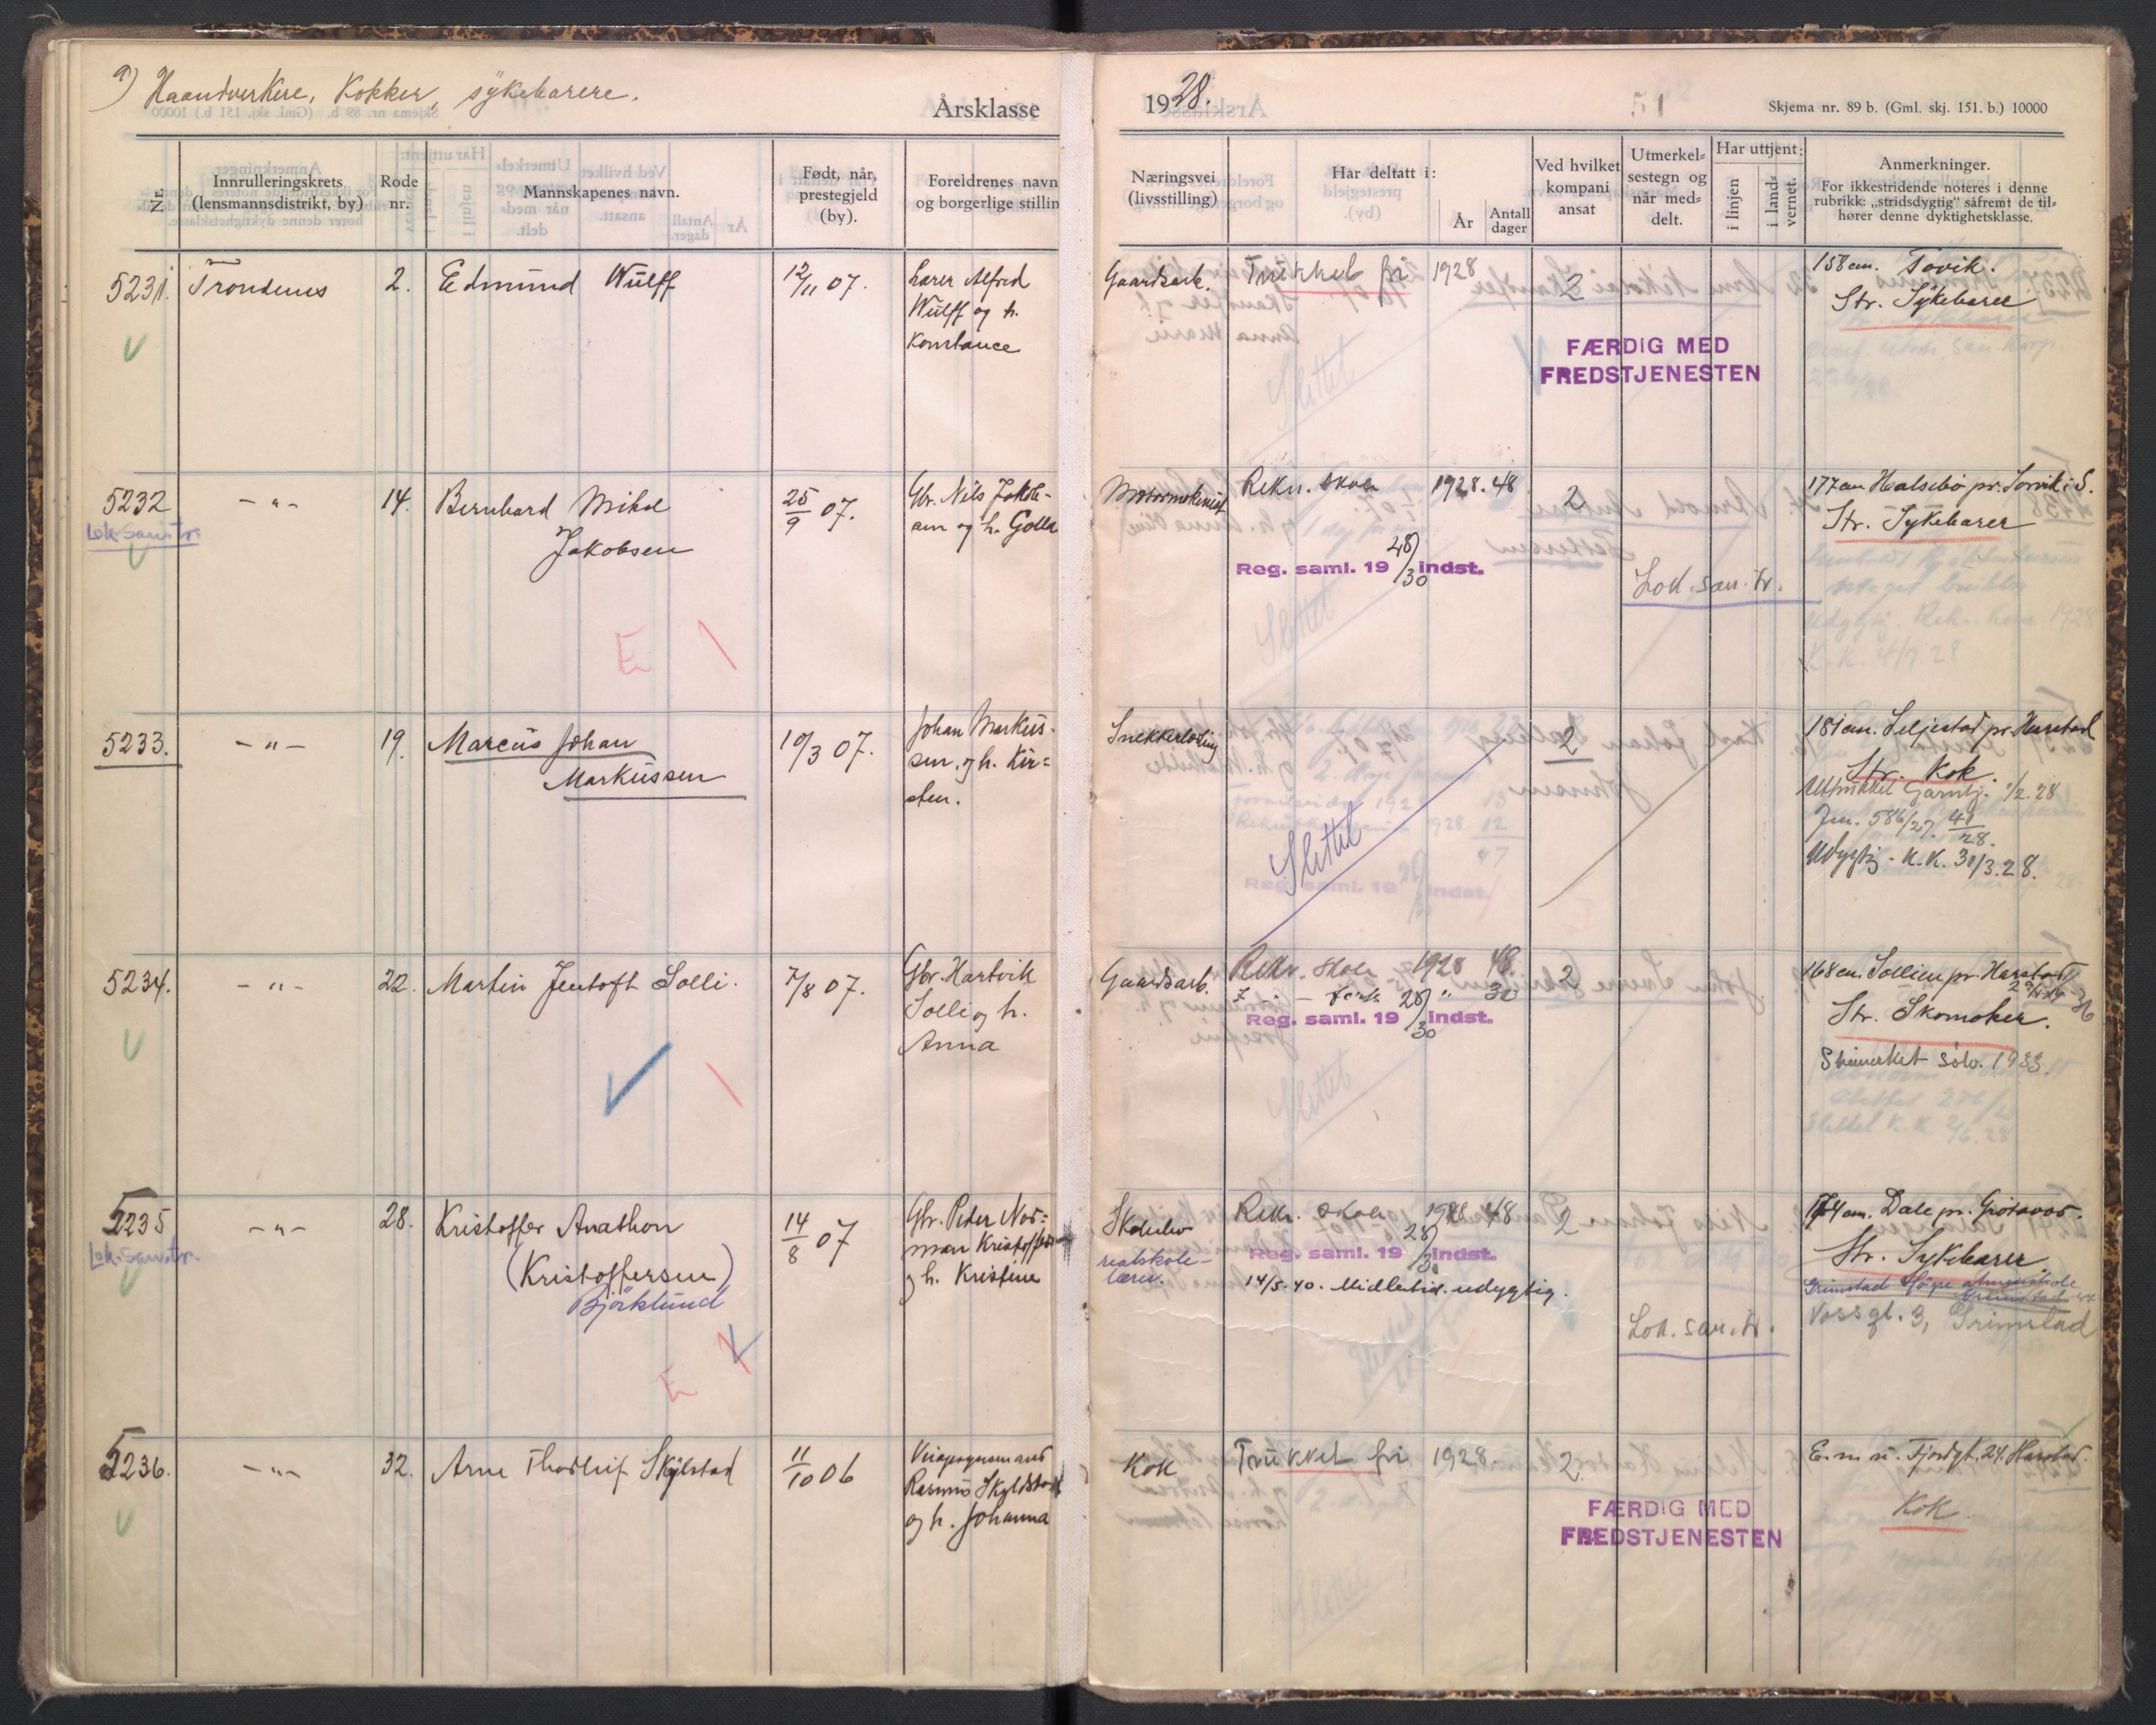 9) Haandverkere, Kokker, sykebarere.
Årsklasse 1928.
51
Skjema nr. 89 b. (Gml. skj. 151. b.) 10000
Nr.
Innrulleringskrets
(lensmannsdistrikt, by)
Rode
nr.
Mannskapenes navn.
Født, når,
prestegjeld
(by).
Foreldrenes navn
og borgerlige stillin
Næringsvei
(livsstilling)
Har deltatt i:
År
Antall
dager
Ved hvilket
kompani
ansat
Utmerkel-
sestegn og
når med-
delt.
Har uttjent:
i linjen
i land-
vernet.
Anmerkninger.
For ikkestridende noteres i denne
rubrikk: „stridsdygtig" såfremt de til-
hører denne dyktighetsklasse.
5231. Trondenes 2. Edmund Wulff 12/11 07.
Lærer Alfred
Wulff og h.
Konstance
Gaardsarb. Trukket fri 1928 2
FÆRDIG MED
FREDSTJENESTEN
158 cm. Tovik.
Str. Sykebarer
5232 - " - 14. Bernhard Mikal
Jakobsen
Lok. San. tr.
25/9 07.
Gbr. Nils Jakob-
sen og h. Golla
E
Rekr. skole 1928. 48 2
Reg. saml. 19 28/30 indst.
Lok. san. tr.
177 cm Halsebø pr. Sørvik i S.
Str. Sykebarer
5233. - " - 19. Marcus Johan
Markussen
10/3 07.
Johan Markus-
sen. og h. Kir-
sten.
2
Slettet
181 cm. Seljestad pr. Harstad
Str. Kok.
Uttrukket Garntj. 1/2. 28
Jnr. 586/27. 41/28.
Udygtig - K.K. 31/3. 28.
5234. - " - 22. Martin Jentoft Solli. 7/8 07.
Gbr. Hartvik
Solli og h.
Anna
Gaardsarb. Rekr. skole 1928 48. 2
28 " 30
Reg. saml. 19 28/30 indst.
168 cm. Sollien pr. Harstad
Str. Skomaker.
Skimerket sølv. 1933.
5235 - " - 28. Kristoffer Anathon
(Kristoffersen)
Bjørklund
Lok. San. tr.
14/8 07
Gbr. Peder Nor-
man Kristoffersen
og h. Kristine
E
realskole-
lærer.
Rekr. skole 1928 48 2
Reg. saml. 19 28/30 indst.
14/5-40. Midlertid. udygtig.
Lok. san. tr.
174 cm. Dale pr. Grøtavær.
Str. Sykebarer.
Grimstad høgre almenskole
Vossgt. 3, Grimstad
5236. - " - 32. Arne Thorleif Skjlstad 11/10 06
Rasmus Skyldstad
og h. Johanna
Kok Trukket fri 1928. 2.
FÆRDIG MED
FREDSTJENESTEN
E. m. n. Fjordgt. 24. Harstad.
Kok.